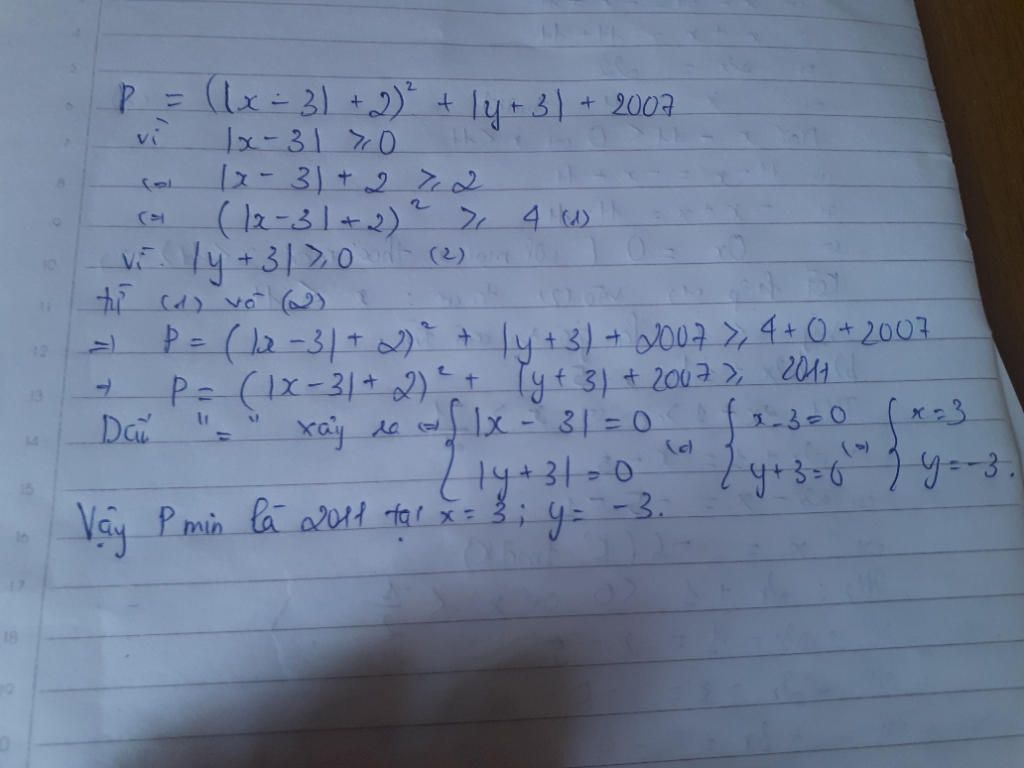 P = (|x - 3| + 2)² + |y + 3| + 2007
vì |x - 3| ≥ 0
(=) |x - 3| + 2 ≥ 2
(=) (|x - 3| + 2)² ≥ 4 (1)
vì |y + 3| ≥ 0 (2)
từ (1) và (2)
=) P = (|x - 3| + 2)² + |y + 3| + 2007 ≥ 4 + 0 + 2007
=) P = (|x - 3| + 2)² + |y + 3| + 2007 ≥ 2011
Dấu "=" xảy ra (=) { |x - 3| = 0 (=) { x - 3 = 0 (=) { x = 3
|y + 3| = 0 y + 3 = 0 y = -3.
Vậy P min là 2011 tại x = 3 ; y = -3.